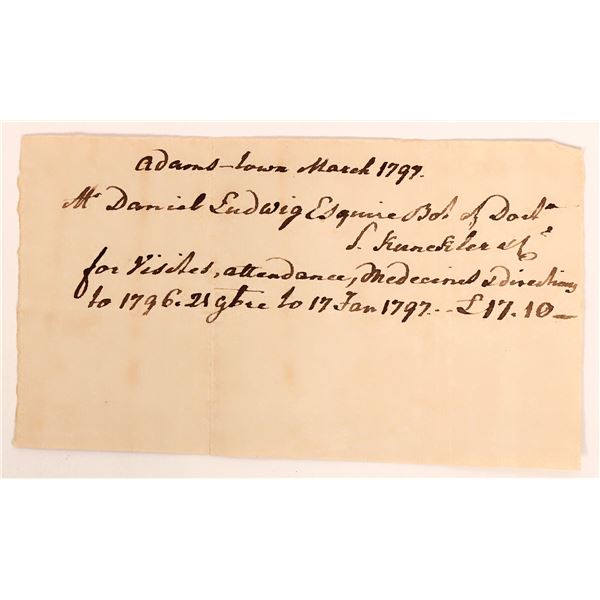 Adams-town March 1797.
Mr Daniel Ludwig Esquire Bot of Doctr
S. Kunckler
for Visites, attendance, Medecines & directions
to 1796. 21 9bre to 17 Jan 1797. -- £17.10 —